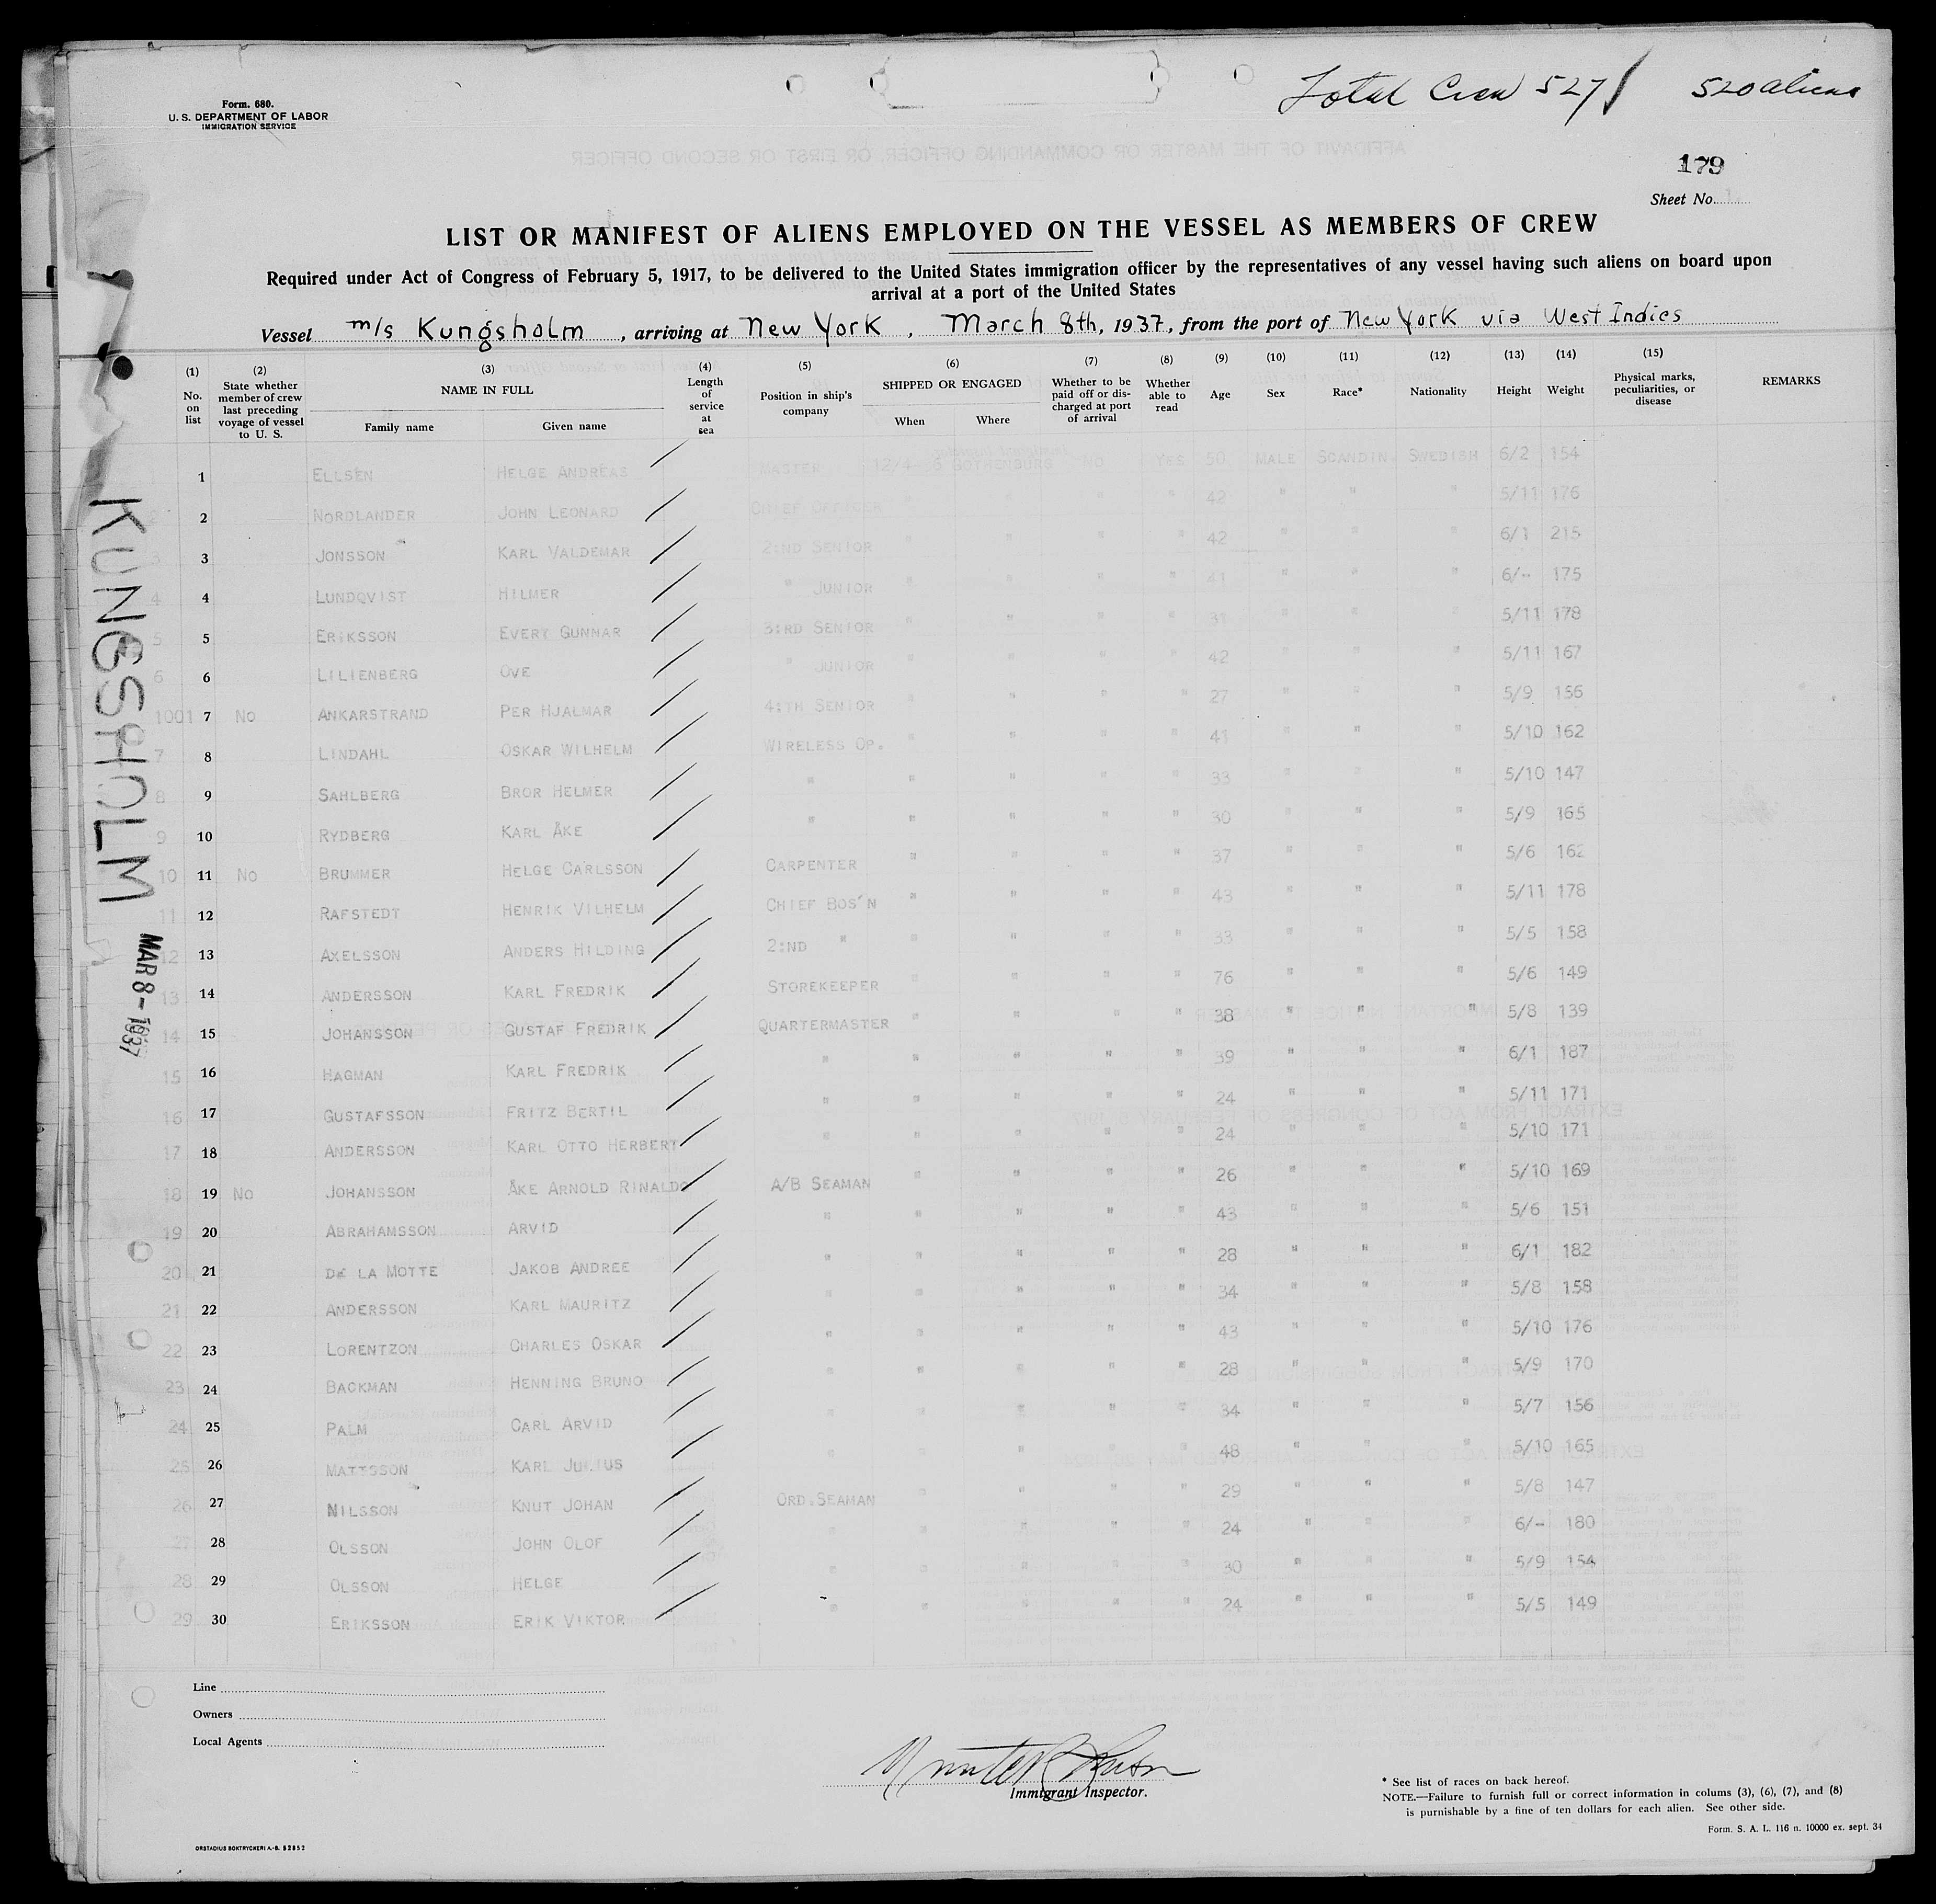 Total Crew 527 520 aliens
Form. 680.
U. S. DEPARTMENT OF LABOR
IMMIGRATION SERVICE
179
Sheet No.
LIST OR MANIFEST OF ALIENS EMPLOYED ON THE VESSEL AS MEMBERS OF CREW
Required under Act of Congress of February 5, 1917, to be delivered to the United States immigration officer by the representatives of any vessel having such aliens on board upon
arrival at a port of the United States
Vessel m/s Kungsholm, arriving at New York, March 8th, 1937, from the port of New York via West Indies
(1) No. on list (2) State whether member of crew last preceding voyage of vessel to U. S. (3) NAME IN FULL Family name Given name (4) Length of service at sea (5) Position in ship's company (6) SHIPPED OR ENGAGED When Where (7) Whether to be paid off or discharged at port of arrival (8) Whether able to read (9) Age (10) Sex (11) Race* (12) Nationality (13) Height (14) Weight (15) Physical marks, peculiarities, or disease REMARKS
1 ELLSEN HELGE ANDREAS MASTER GOTHENBURG NO YES 50 MALE SCANDIN SWEDISH 6/2 154
2 NORDLANDER JOHN LEONARD CHIEF OFFICER " " " " 42 " " " 5/11 176
3 JONSSON KARL VALDEMAR 2:ND SENIOR " " " " 42 " " " 6/1 215
4 LUNDQVIST HILMER " JUNIOR " " " " 41 " " " 6/-- 175
5 ERIKSSON EVERT GUNNAR 3:RD SENIOR " " " " 31 " " " 5/11 178
6 LILIENBERG OVE " JUNIOR " " " " 42 " " " 5/11 167
1001 7 No ANKARSTRAND PER HJALMAR 4:TH SENIOR " " " " 27 " " " 5/9 156
7 8 LINDAHL OSKAR WILHELM WIRELESS OP. " " " " 41 " " " 5/10 162
8 9 SAHLBERG BROR HELMER " " " " " 33 " " " 5/10 147
9 10 RYDBERG KARL ÅKE " " " " " 30 " " " 5/9 165
10 11 No BRUMMER HELGE CARLSSON CARPENTER " " " " 37 " " " 5/6 162
11 12 RAFSTEDT HENRIK VILHELM CHIEF BOS'N " " " " 43 " " " 5/11 178
12 13 AXELSSON ANDERS HILDING 2:ND " " " " " 33 " " " 5/5 158
13 14 ANDERSSON KARL FREDRIK STOREKEEPER " " " " 76 " " " 5/6 149
14 15 JOHANSSON GUSTAF FREDRIK QUARTERMASTER " " " " 38 " " " 5/8 139
15 16 HAGMAN KARL FREDRIK " " " " " 39 " " " 6/1 187
16 17 GUSTAFSSON FRITZ BERTIL " " " " " 24 " " " 5/11 171
17 18 ANDERSSON KARL OTTO HERBERT " " " " " 24 " " " 5/10 171
18 19 No JOHANSSON ÅKE ARNOLD RINALDO A/B SEAMAN " " " " 26 " " " 5/10 169
19 20 ABRAHAMSSON ARVID " " " " " 43 " " " 5/6 151
20 21 DE LA MOTTE JAKOB ANDREE " " " " " 28 " " " 6/1 182
21 22 ANDERSSON KARL MAURITZ " " " " " 34 " " " 5/8 158
22 23 LORENTZON CHARLES OSKAR " " " " " 43 " " " 5/10 176
23 24 BACKMAN HENNING BRUNO " " " " " 28 " " " 5/9 170
24 25 PALM CARL ARVID " " " " " 34 " " " 5/7 156
25 26 MATTSSON KARL JULIUS " " " " " 48 " " " 5/10 165
26 27 NILSSON KNUT JOHAN ORD.SEAMAN " " " " 29 " " " 5/8 147
27 28 OLSSON JOHN OLOF " " " " " 24 " " " 6/-- 180
28 29 OLSSON HELGE " " " " " 30 " " " 5/9 154
29 30 ERIKSSON ERIK VIKTOR " " " " " 24 " " " 5/5 149
KUNGSHOLM
MAR 8 - 1937
Line
Owners
Local Agents
Immigrant Inspector.
* See list of races on back hereof.
NOTE.—Failure to furnish full or correct information in colums (3), (6), (7), and (8)
is punishable by a fine of ten dollars for each alien. See other side.
Form. S. A. L. 116 n. 10000 ex. sept. 34
ORSTADIUS BOKTRYCKERI A.-B. 52852